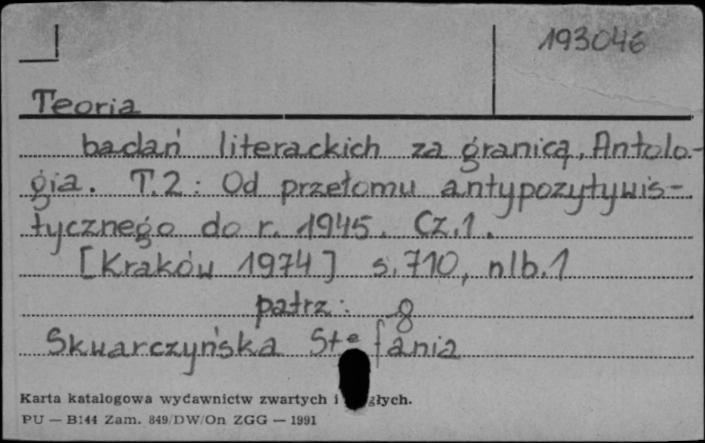 193046
Teoria
badań literackich za granicą. Antolo-
gia. T.2: Od przełomu antypozytywis-
tycznego do r. 1945. Cz.1.
[Kraków 1974] s. 710, nlb.1
patrz: 8
Skwarczyńska Stefania
Karta katalogowa wydawnictw zwartych i
PU — B144 Zam. 849/DW/On ZGG — 1991